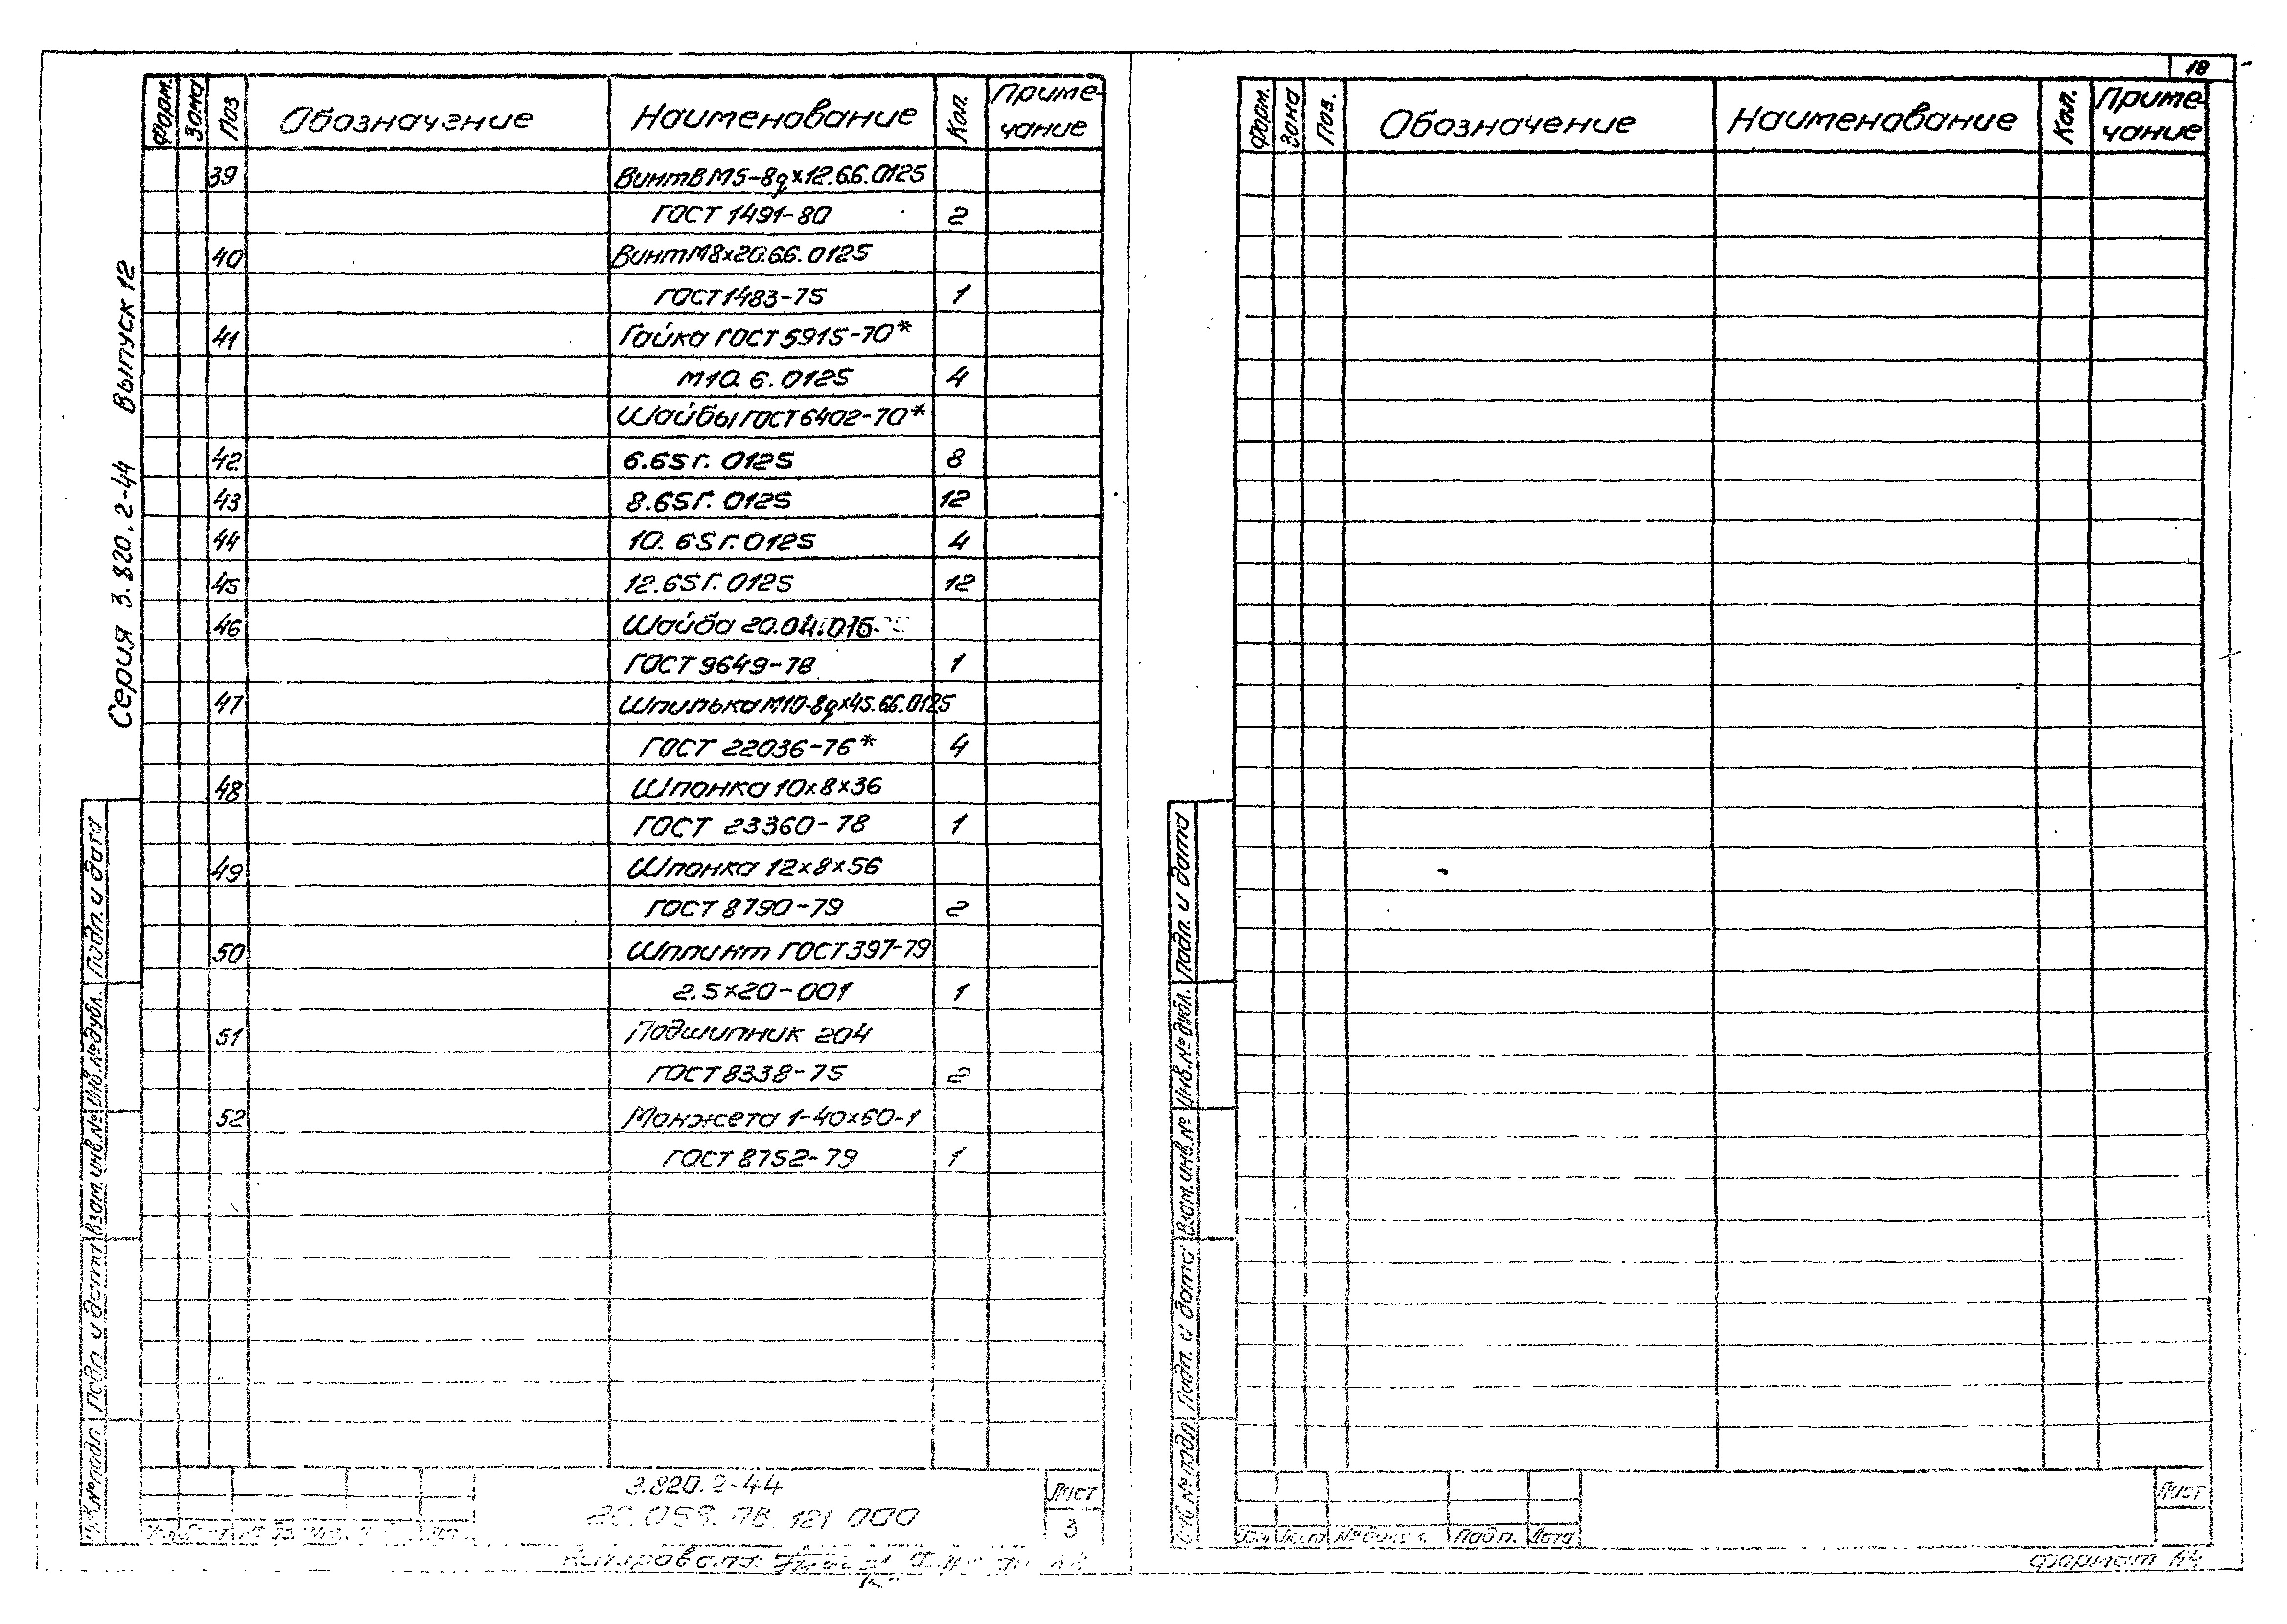 18
Форм. Зона Поз Обозначение Наименование Кол. Приме-
чание
39 Винт В М5-8gx12.66.0125
ГОСТ 1491-80 2
40 Винт М8х20.66.0125
ГОСТ 1483-75 1
41 Гайка ГОСТ 5915-70*
М10.6.0125 4
Шайбы ГОСТ 6402-70*
42 6.65Г.0125 8
43 8.65Г.0125 12
44 10.65Г.0125 4
45 12.65Г.0125 12
46 Шайба 20.04.016
ГОСТ 9649-78 1
47 Шпилька М10-8gx45.66.0125
ГОСТ 22036-76* 4
48 Шпонка 10х8х36
ГОСТ 23360-78 1
49 Шпонка 12х8х56
ГОСТ 8790-79 2
50 Шплинт ГОСТ 397-79
2.5х20-001 1
51 Подшипник 204
ГОСТ 8338-75 2
52 Манжета 1-40х60-1
ГОСТ 8752-79 1
Серия 3.820.2-44 Выпуск 12
Подп. и дата
Инв.№ дубл.
Взам.инв.№
Подп. и дата
№ подл
3.820.2-44
Лист
3
Копировала:
Форм. Зона Поз. Обозначение Наименование Кол. Приме-
чание
Подп. и дата
Инв.№ дубл.
Взам.инв.№
Подп. и дата
Инв. № подл
Лист
Лист Подп. Дата
формат А4